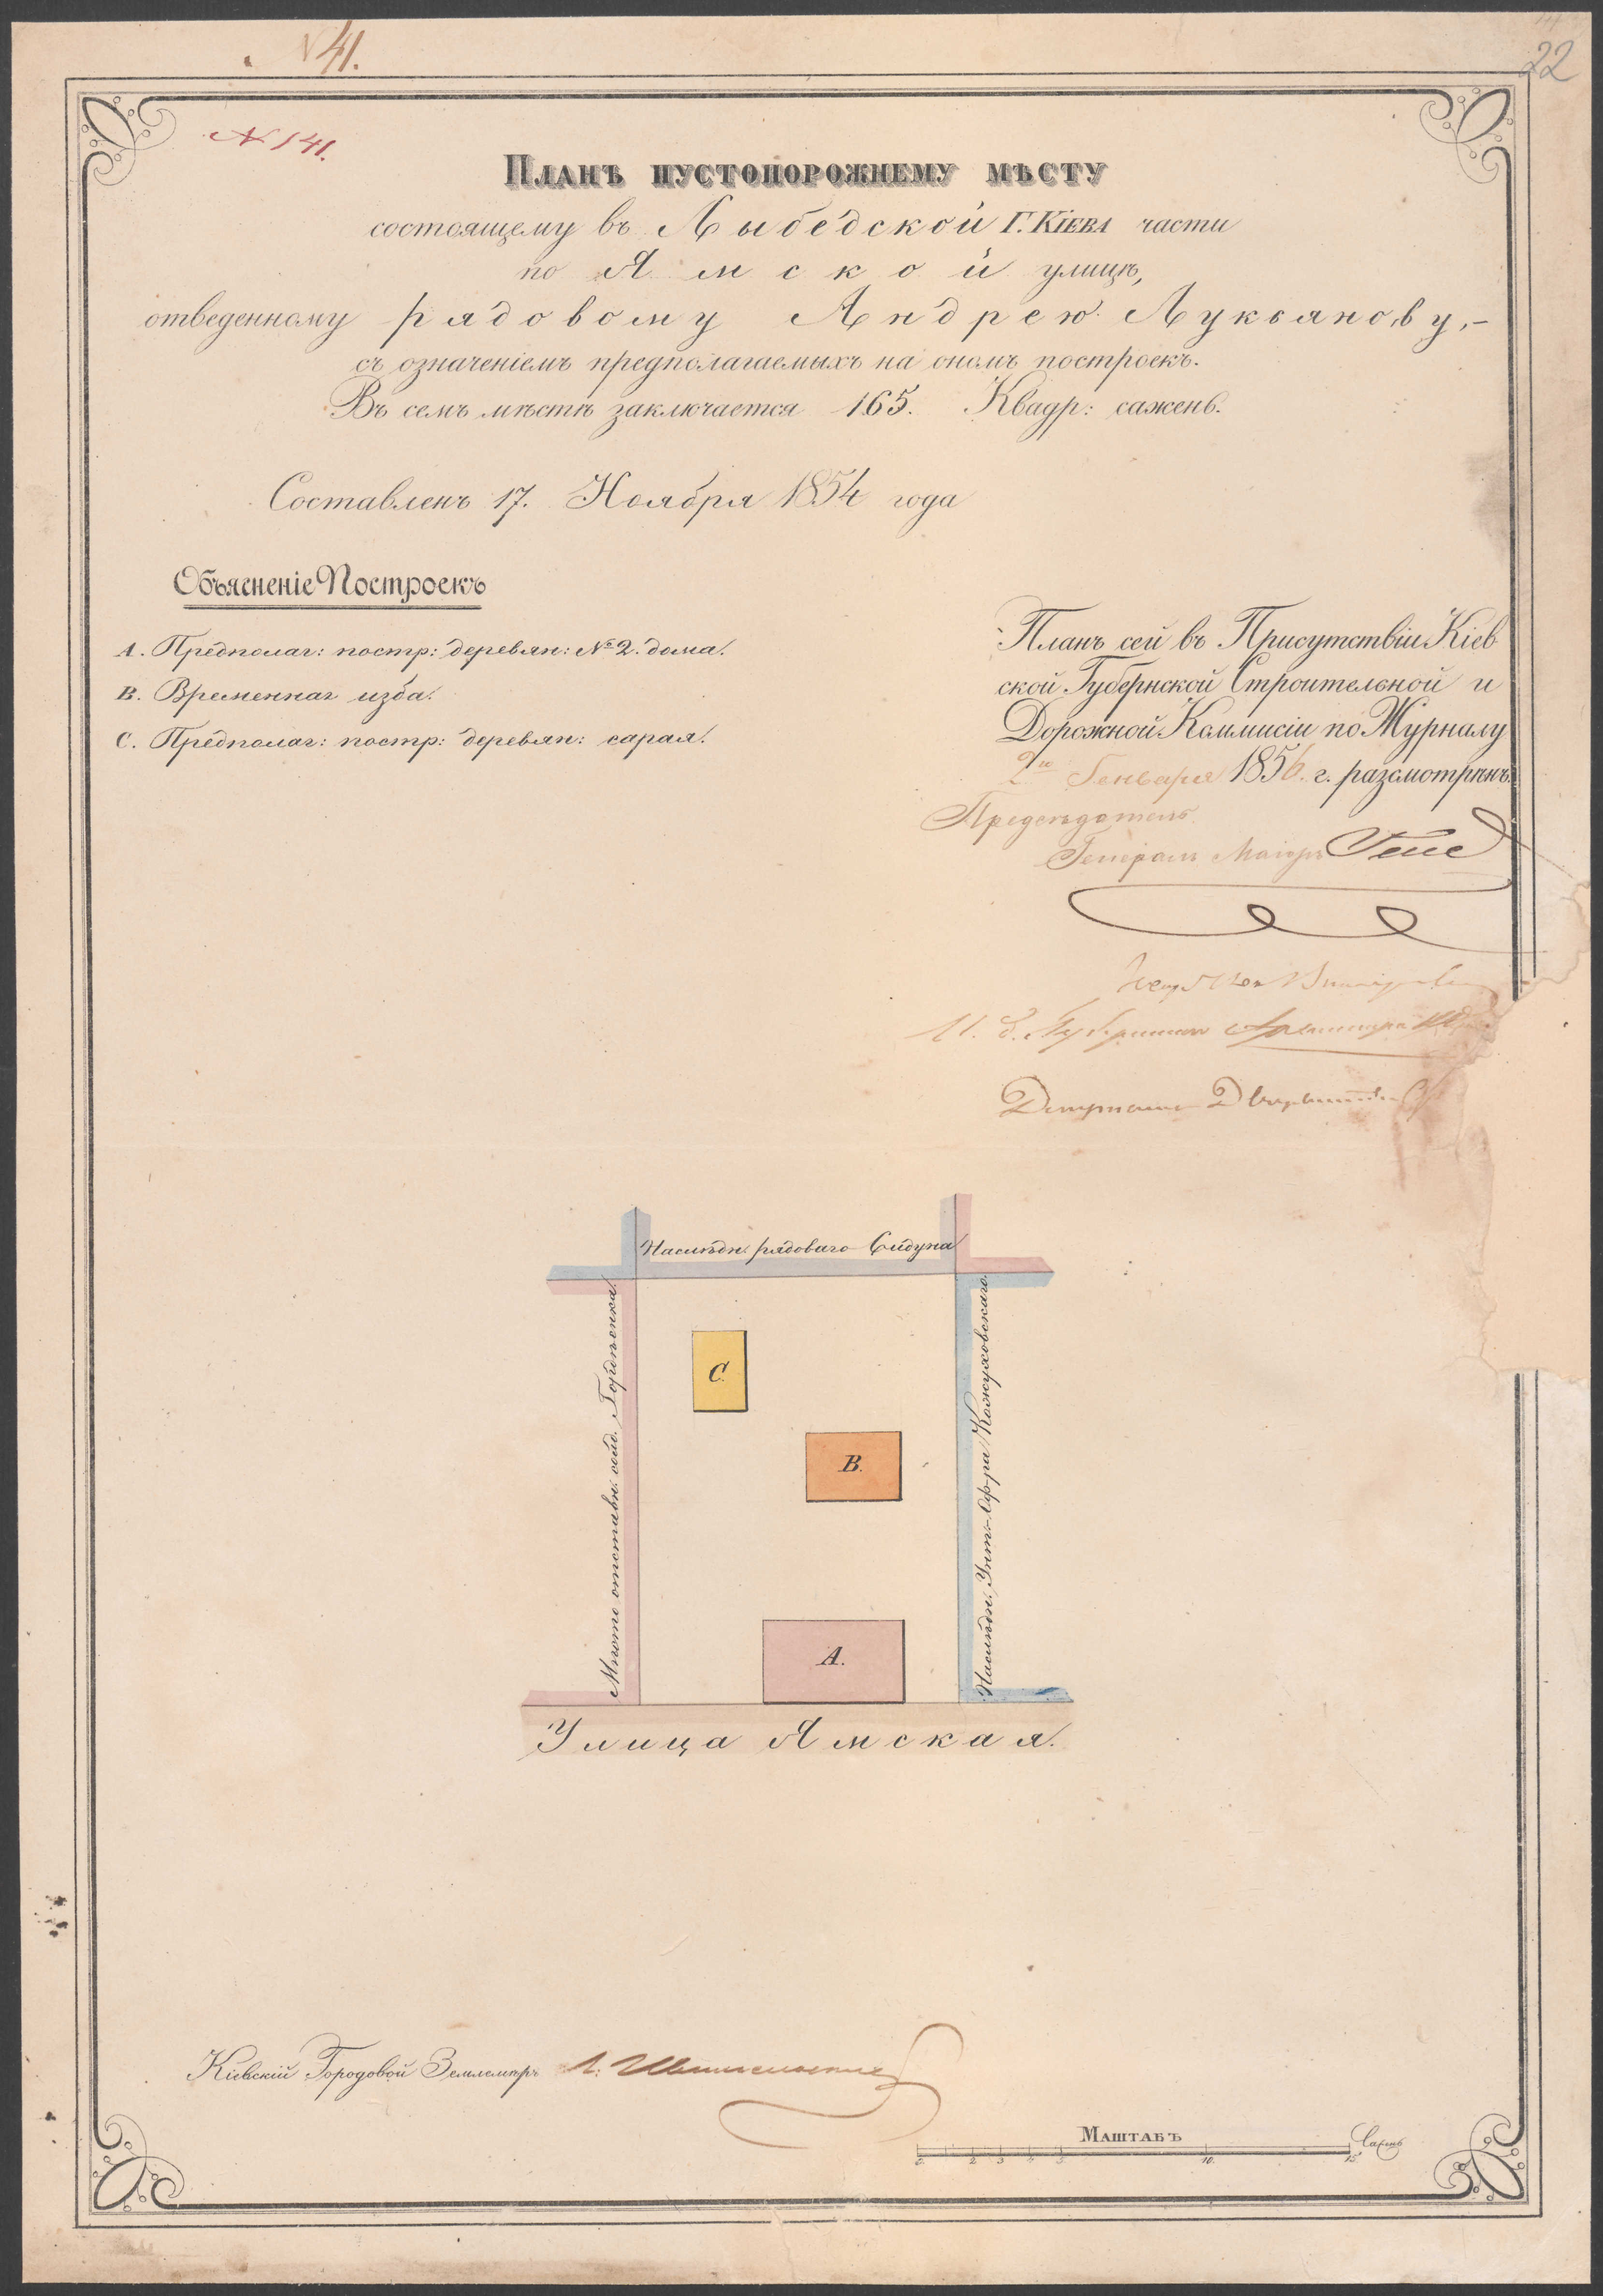 N 41.
22
N 141.
Планъ пустопорожнему мѣсту
состоящему въ Лыбедской Г. Кіева части
по Ямской улицѣ,
отведенному рядовому Андрею Лукьянову,-
съ означеніемъ предполагаемыхъ на ономъ построекъ.
Въ семъ мѣстѣ заключается 165. Квадр: сажень.
Составленъ 17. Ноября 1854 года
Объясненіе Построекъ
А. Предполаг: постр: деревян: № 2. дома.
В. Временная изба.
С. Предполаг: постр: деревян: сарая.
Планъ сей въ Присутствіи Кіев
ской Губернской Строительной и
Дорожной Коммисіи по Журналу
2го Генваря 1856. г. разсмотрѣнъ
Предсѣдатель
Генералъ Маіоръ
Губернскій
Депутатъ
Наслѣдн: рядоваго Сидуна
Мѣсто отставн: Гордѣенка
Наслѣдн: Унт:-Оф-ра Кожуховскаго.
С.
В.
А.
Улица Ямская.
Кіевскій Городовой Землемѣръ
Маштабъ
Сажень
2 3 4 5 10 15